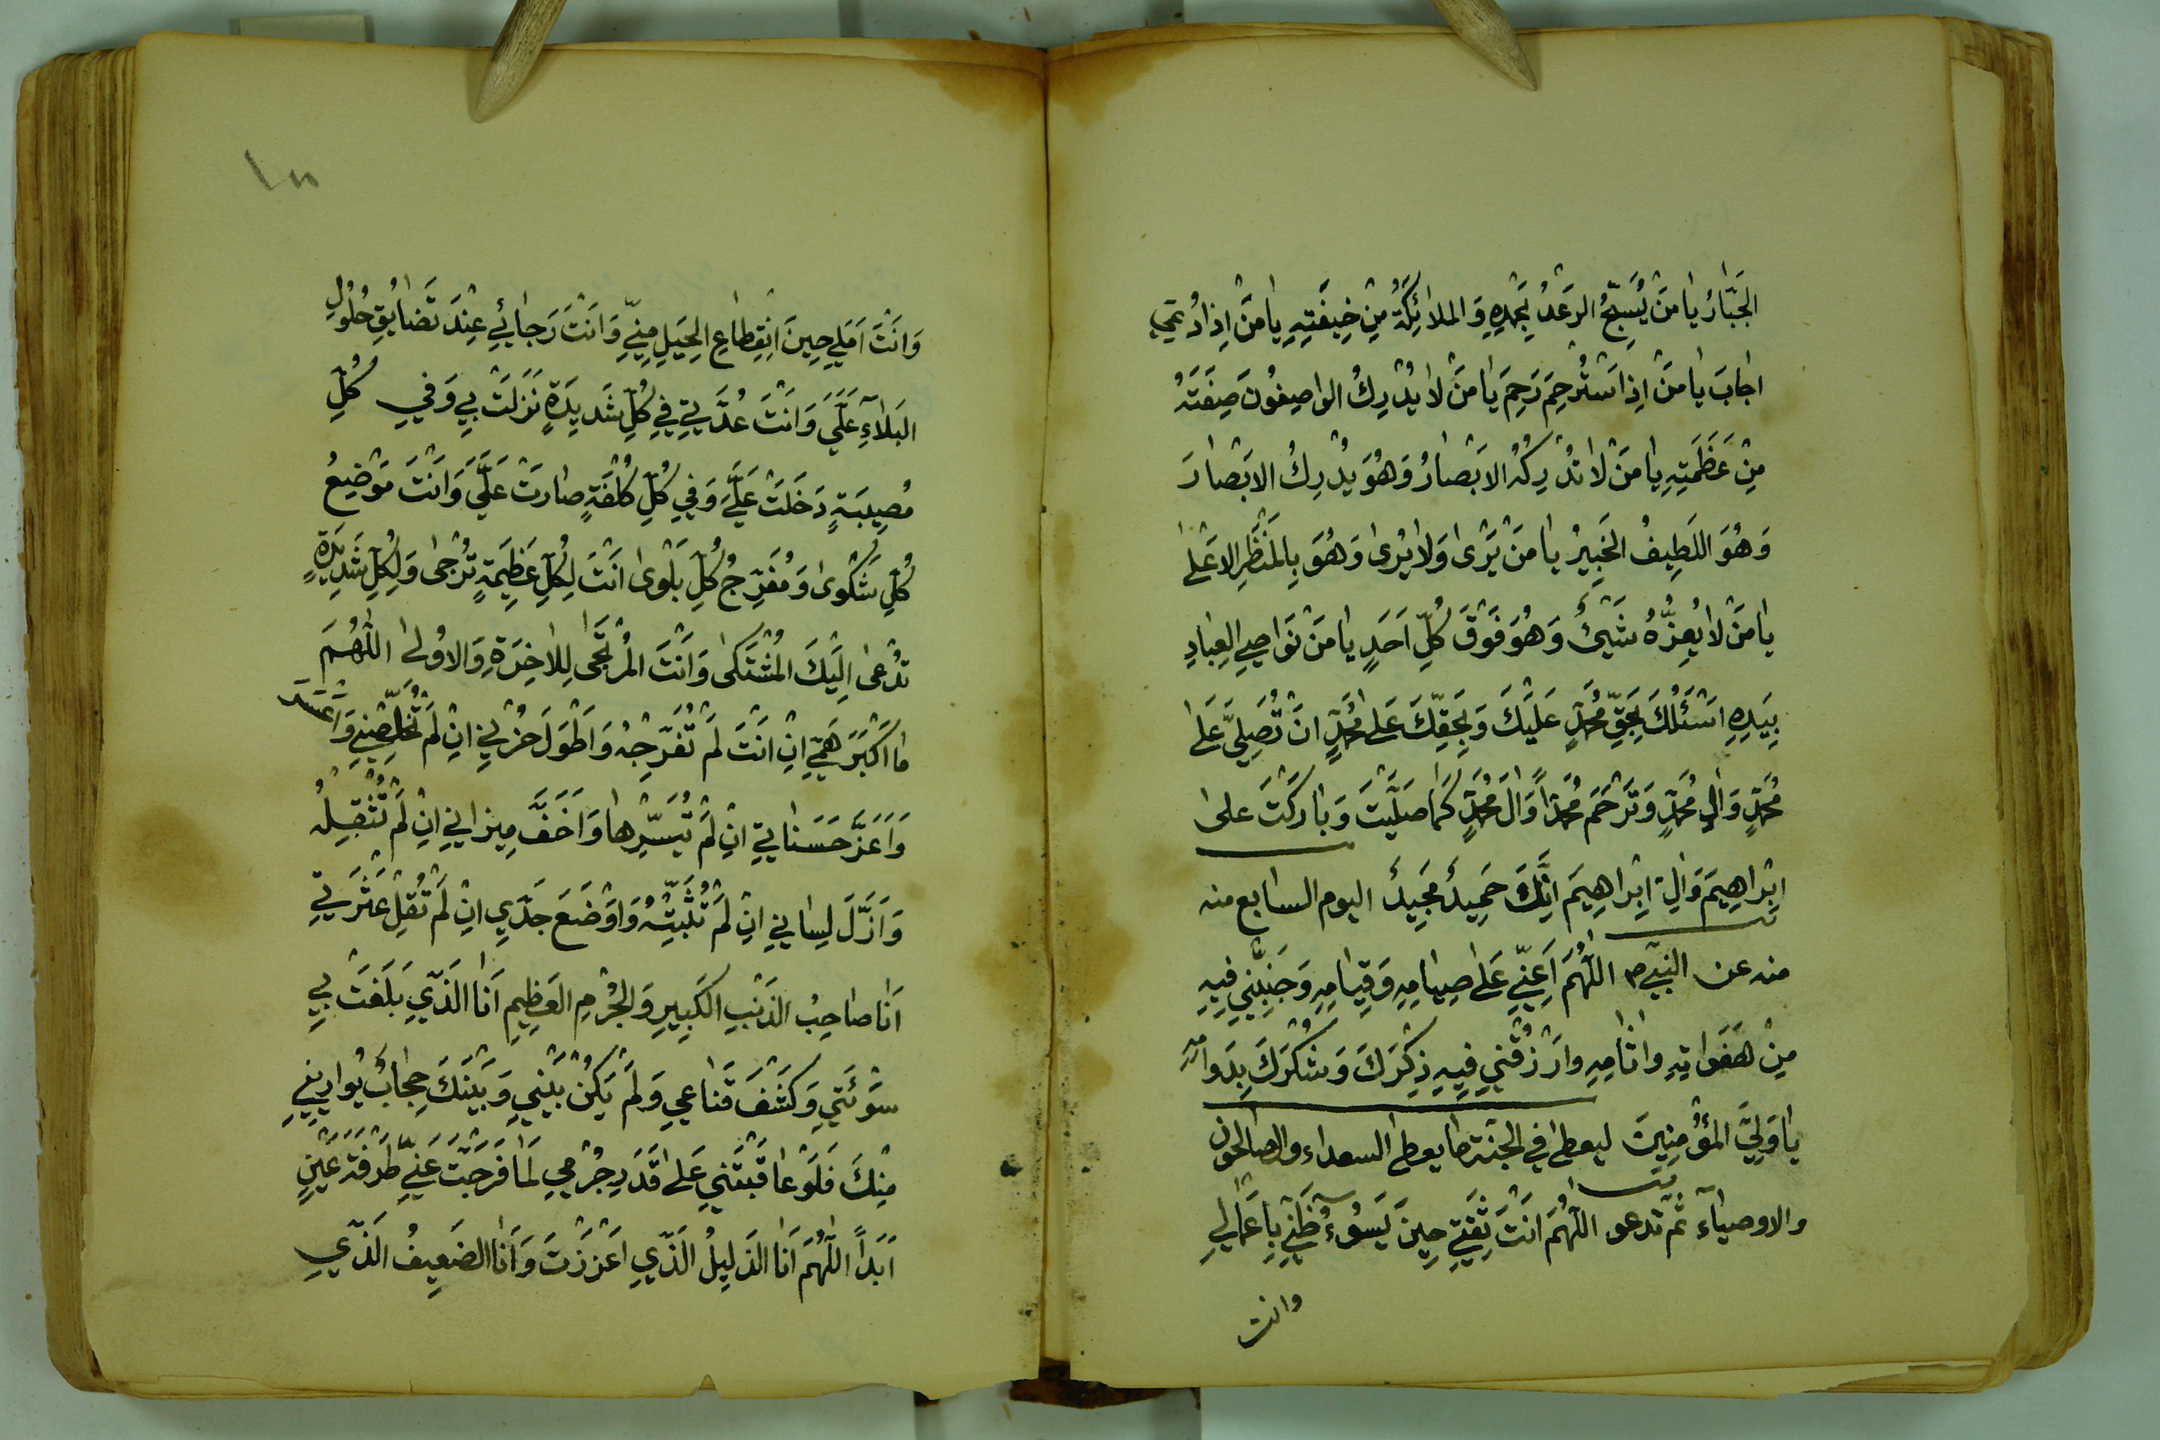 الجَبّارُ يا مَنْ يُسَبِّحُ الرَعْدُ بِحَمْدِهِ وَالملائِكَةُ مِنْ خِيفَتِهِ يا مَنْ اِذا دُعِيَ
اجابَ يا مَنْ اِذا اسْتُرْحِمَ رَحِمَ يا مَنْ لا يُدْرِكُ الواصِفُونَ صِفَتَهُ
مِنْ عَظَمَتِهِ يا مَنْ لا تُدْرِكُهُ الابْصارُ وَهُوَ يُدْرِكُ الابْصارَ
وَهُوَ اللَطِيفُ الخَبِيرُ يا مَنْ يَرْى وَلا يُرى وَهُوَ بِالمَنْظَرِ الاعَلْى
يا مَنْ لا يُعِزُّهُ شَيْئٌ وَهُوَ فَوْقَ كُلِّ اَحَدٍ يا مَنْ نَواصِي العِبادِ
بِيَدِهِ اسْئَلُكَ بِحَقِّ مُحَمَّدٍ عَلَيْكَ وَبِحَقِّكَ عَلى مُحَمَّدٍ انْ تُصَلِّيَ عَلى
مُحَمَّدٍ وَالِ مُحَمَّدٍ وَتَرْحَمَ مُحَمَّداً وَالَ مُحَمَّدٍ كَما صَلَّيْتَ وَبارَكْتَ على
اِبْراهِيمَ وَالِ اِبْراهِيمَ اِنَّكَ حَمِيدٌ مَجِيدٌ اليوم السابع منه
منه عن النبي ص اللّهُمَ اَعِنِّي عَلى صِيامِهِ وَقِيامِهِ وَجَنِّبْنِي فِيهِ
مِنْ هَفَواتِهِ واثامِهِ وارْزُقْنِي فِيهِ ذِكْرَكَ وَشُكْرَكَ بِدَوامِهِ
يا وَلِيَّ المُؤْمِنِينَ ليعطى في الجنة ما يعطى السعداء والصالحون
والاوصياء ثم تدعو اللّهُمَ انْتَ ثِقَتِي حِينَ يَسُوءُ ظَنِّي بِاَعْمالِي
وانت
١٠٠
وَانْتَ اَمَلِي حِينَ انْقِطاعِ الحِيَلِ مِنِّي وَانْتَ رَجائِي عِنْدَ تَضايُقِ حُلُولِ
البَلاءِ عَلَّيَ وَانْتَ عُدَّتِي فِي كُلِّ شَدِيدَةٍ نَزَلَتْ بِي وَفي كُلِّ
مُصِيبَةٍ دَخَلَتْ عَلَّيَ وَفِي كُلِّ كُلْفَةٍ صارَتْ عَلَّيَ وَانْتَ مَوْضِعُ
كُلِّ شَكْوى وَمُفَرِّجُ كُلِّ بَلْوى انْتَ لِكُلِّ عَظِيمَةٍ تُرْجى وَلِكُلِّ شَدِيدَةٍ
تُدْعى اِلَيْكَ المُشْتَكى وَانْتَ المُرْتَجى لِلاخِرَةِ وَالاوُلى اللّهُمَ
ما اكْبَرَ هَمِّي اِنْ انْتَ لَمْ تُفَرِّجْهُ وَاَطْوَلَ حُزْنِي اِنْ لَمْ تُخَلِّصْنِي وَاَعْسَرَ
وَاَعَزَّ حَسَناتِي اِنْ لَمْ تُيَسِّرْها وَاَخَفَّ مِيزانِي اِنْ لَمْ تُثْقِلْهُ
وَاَزَلَّ لِسانِي اِنْ لَمْ تُثَبِّتْهُ وَاوْضَعَ جَدِّي اِنْ لَمْ تُقِلْ عَثْرَتِي
اَنا صاحِبُ الذَنْبِ الكَبِيرِ وَالجُرْمِ العَظِيمِ اَنا الَّذِي بَلَغَتْ بِي
سَوْئَتِي وَكَشَفَ قَناعِي وَلَمْ يَكُنْ بَيْنِي وَبَيْنَكَ حِجابٌ يُوارِينِي
مِنْكَ فَلَوْ عاقَبْتَنِي عَلى قَدَرِ جُرْمِي لَما فَرَّجْتَ عَنِّي طَرْفَةَ عَيْنٍ
اَبَداً اللّهُمَ اَنا الذَلِيلُ الَّذِي اَعْزَزْتَ وَاَنا الضَعِيفُ الَّذِي